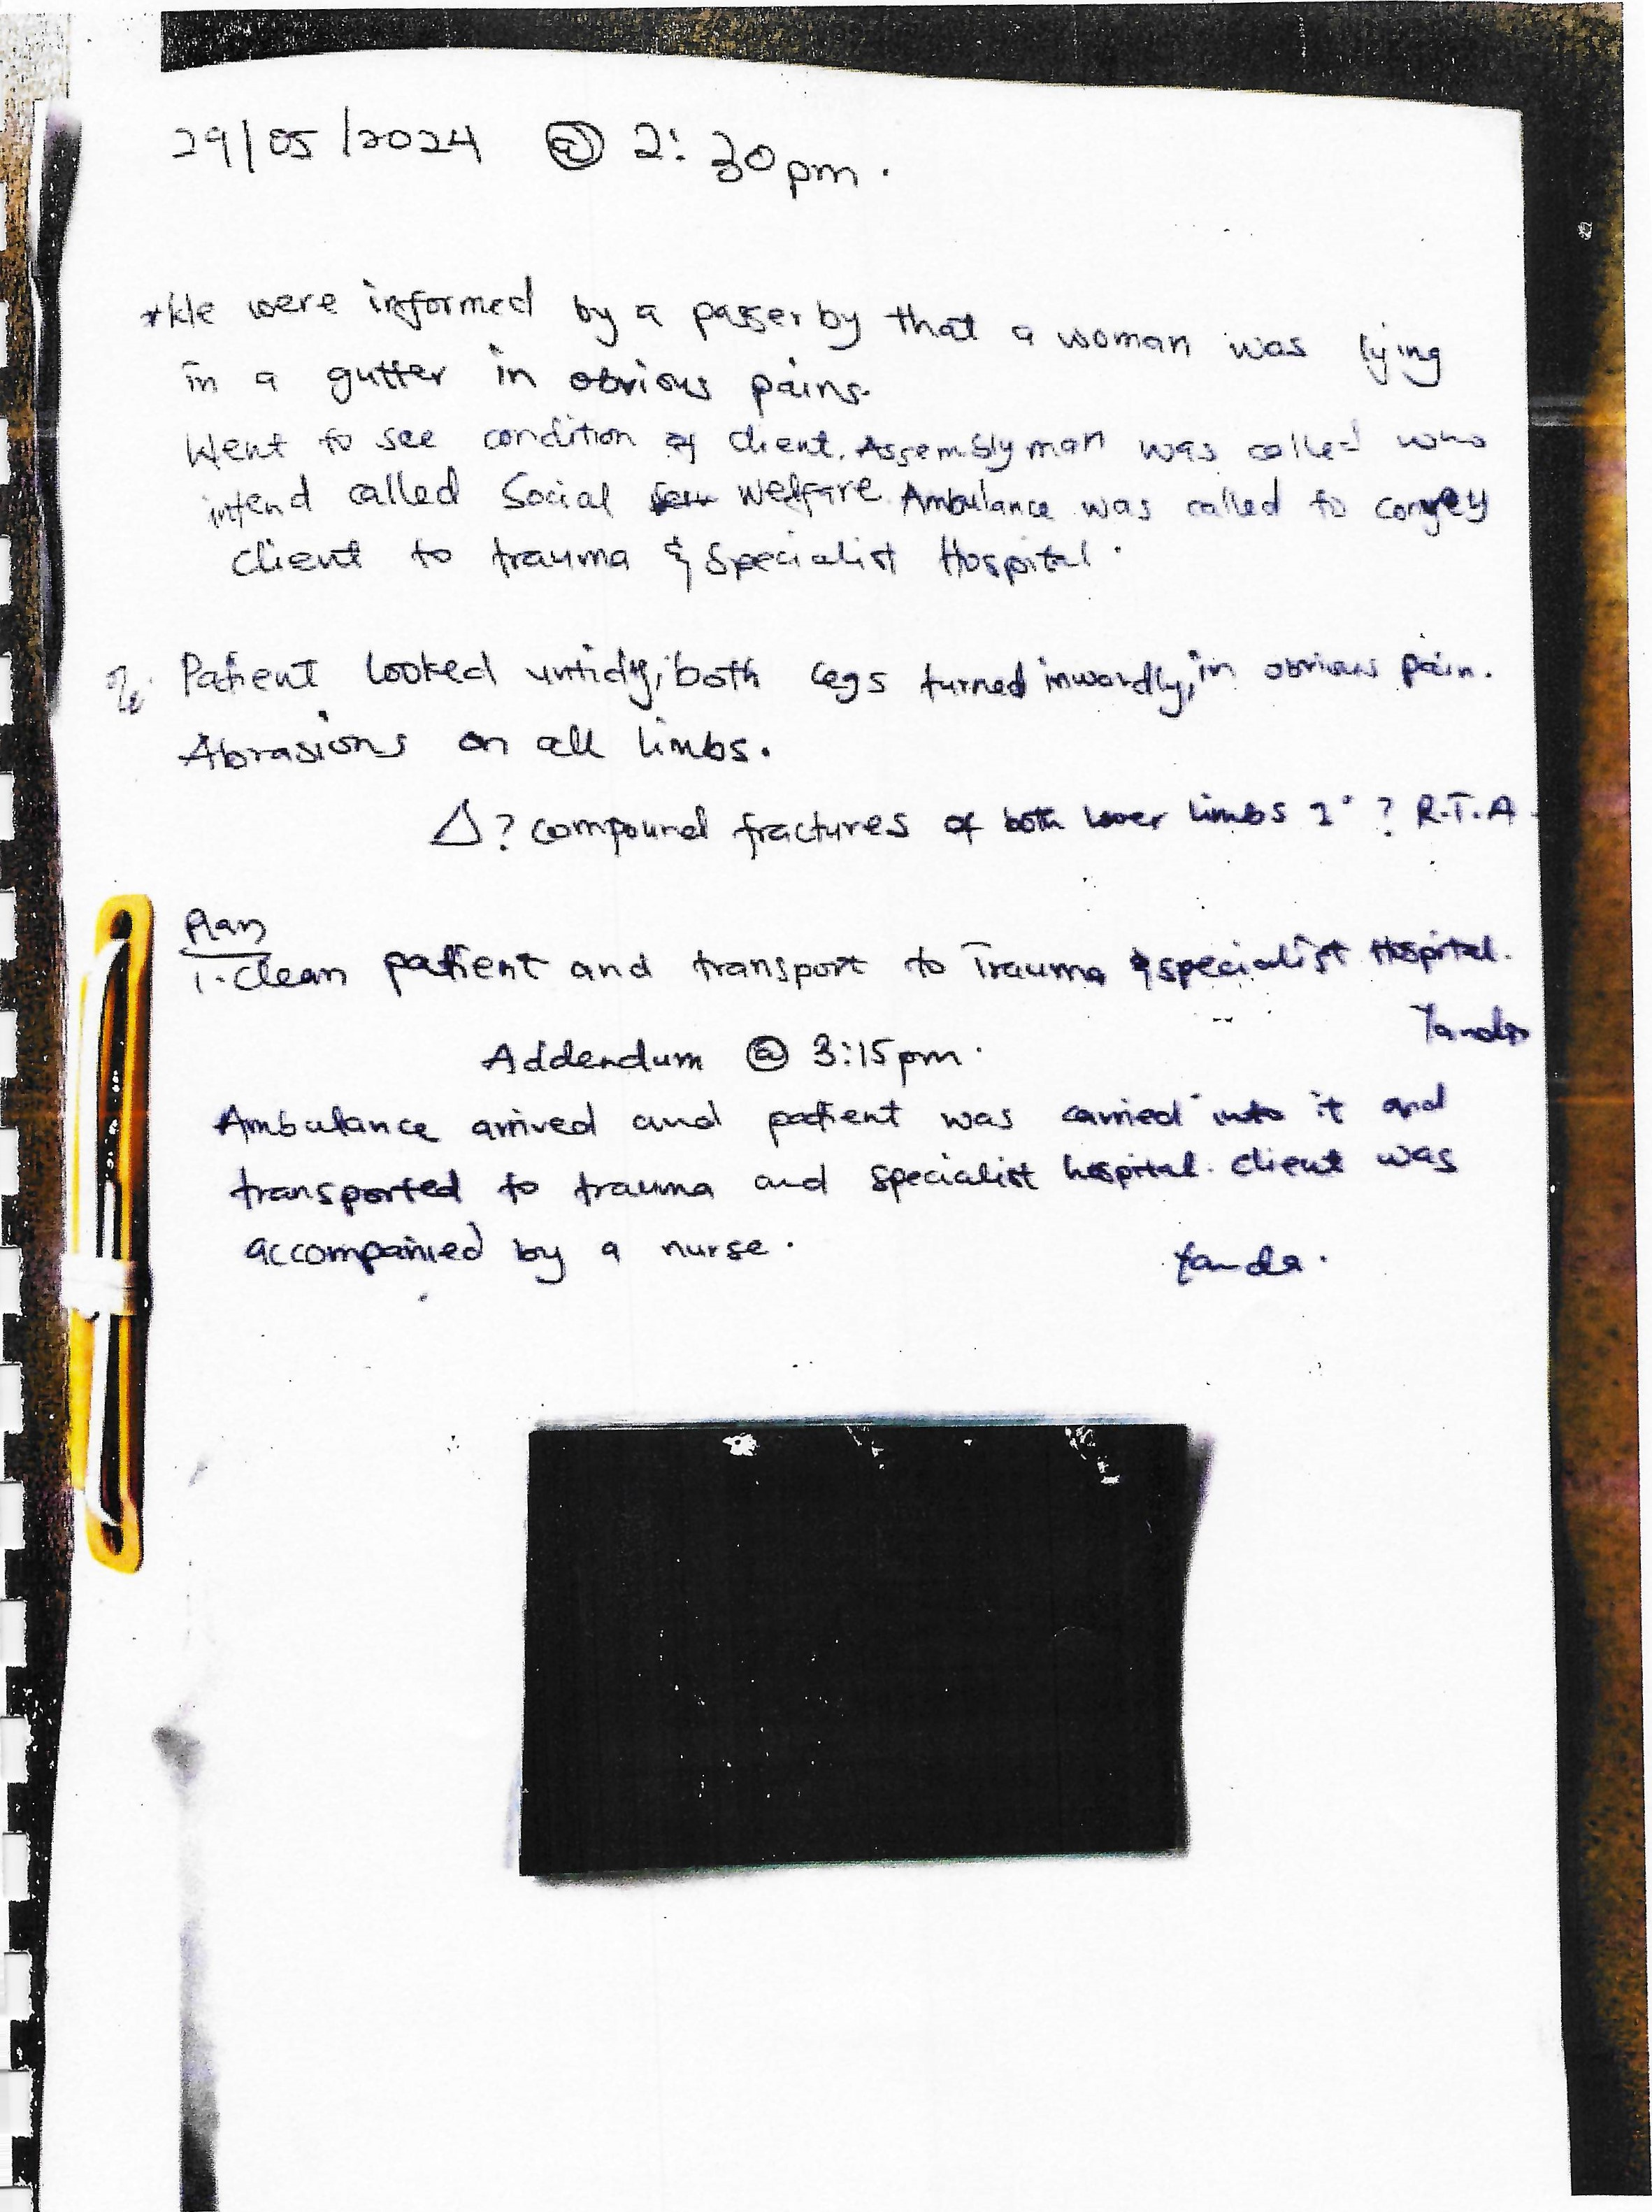 29/05/2024 @ 2:30pm.
*We were informed by a passer by that a woman was lying
in a gutter in obvious pains.
Went to see condition of client. Assemblyman was called who
intend called Social welfare. Ambulance was called to convey
client to trauma & Specialist Hospital.
Patient looked untidy, both legs turned inwardly, in obvious pain.
Abrasions on all limbs.
Δ? compound fractures of both lower limbs 2° ? R.T.A.
Plan
1. Clean patient and transport to Trauma & specialist Hospital.
Addendum @ 3:15pm.
Ambulance arrived and patient was carried into it and
transported to trauma and specialist hospital. client was
accompanied by a nurse.